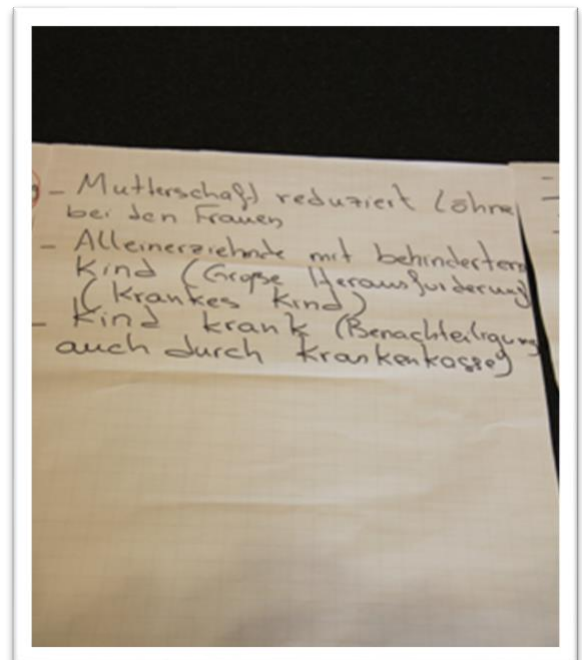 - Mutterschaft reduziert Löhne
bei den Frauen
- Alleinerziehnde mit behinderten
Kind (Große Herausforderung
(Krankes Kind)
- Kind krank (Benachteiligung
auch durch Krankenkasse)